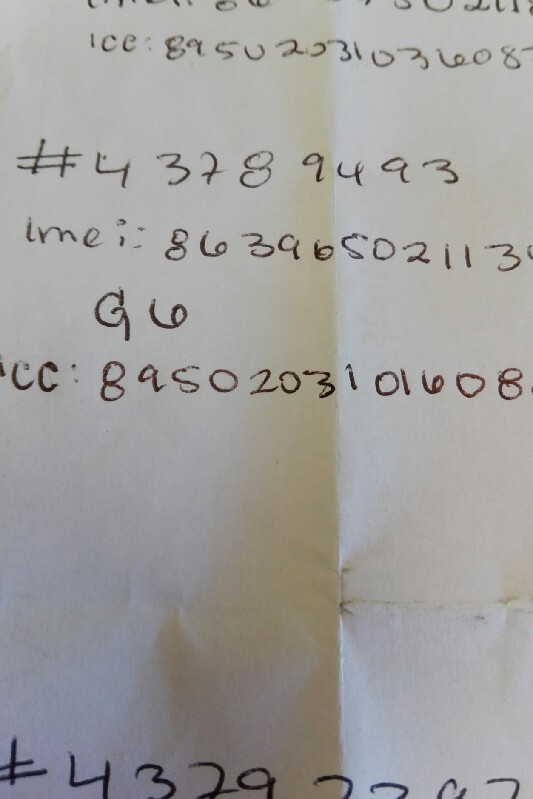 icc: 8950203103608
#4 3789493
Imei: 86396502113
G6
icc: 8950203101608
#4379